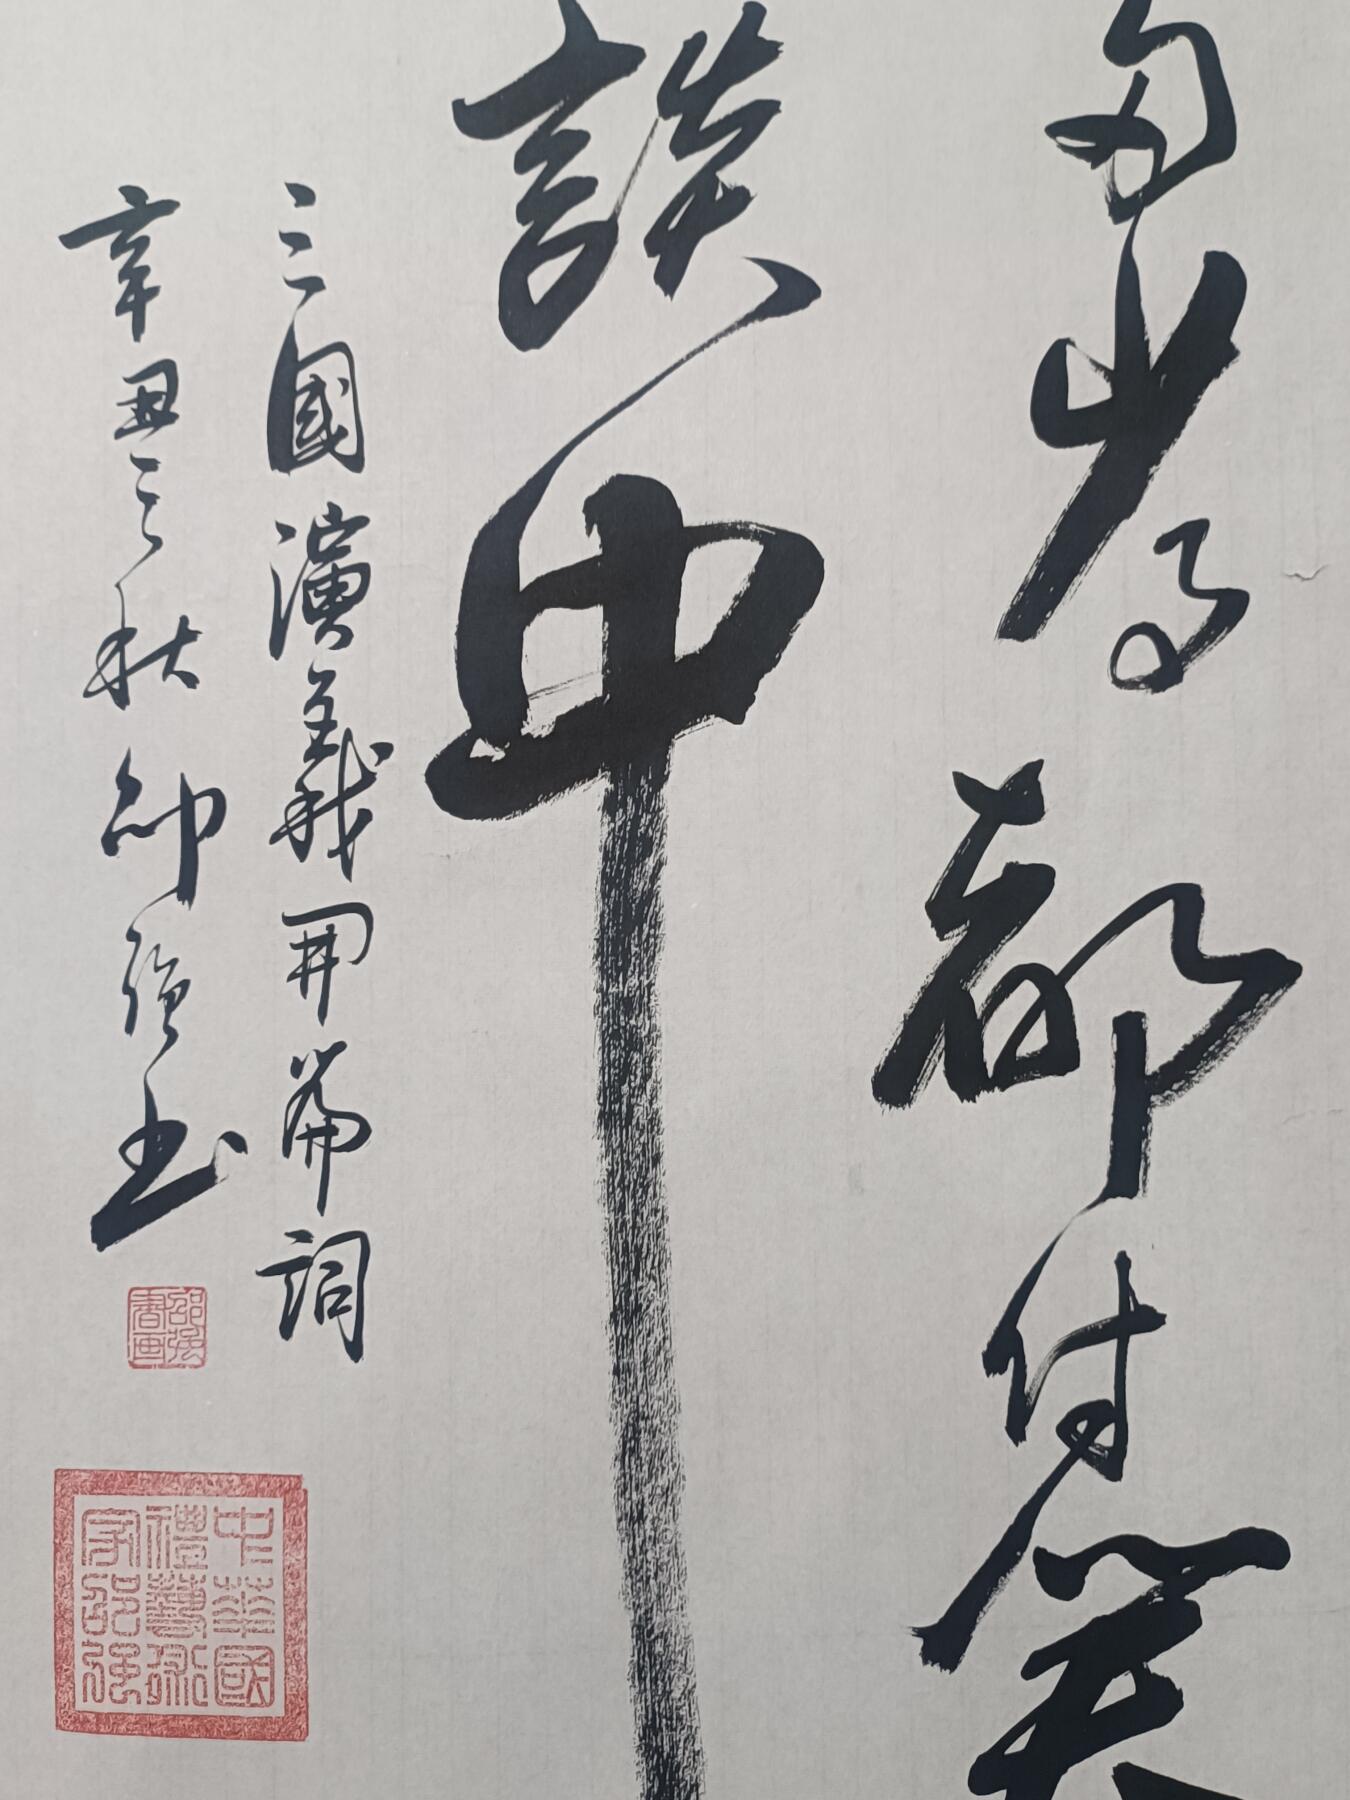 多少事都付笑
談中
三國演義開篇詞
辛丑之秋邵强书
邵强
書画
中華國
禮藝術
家邵强